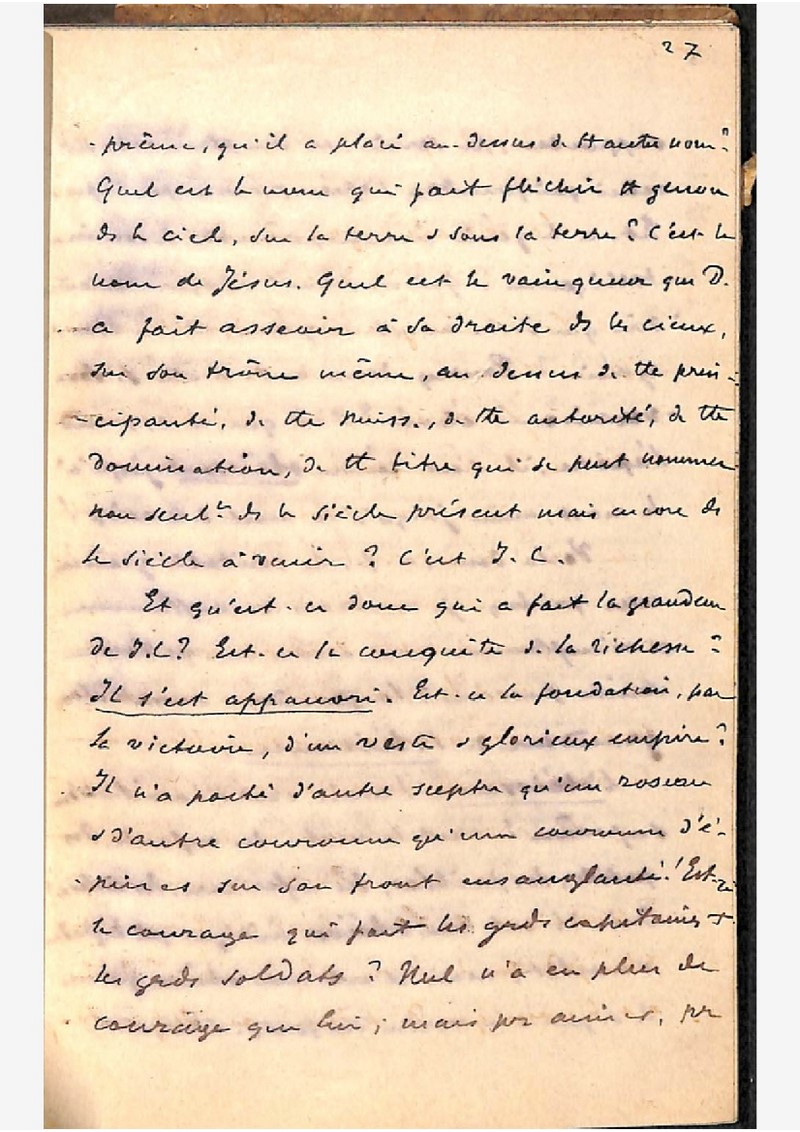 27
-prême, qu'il a placé au-dessus de tt autre nom?
Quel est le nom qui fait fléchir tt genou
ds le ciel, sur la terre & sous la terre? C'est le
nom de Jésus. Quel est le vainqueur que D.
a fait asseoir à sa droite ds les cieux,
sur son trône même, au dessus de tte prin-
-cipauté, de tte puiss., de tte autorité, de tte
domination, de tt titre qui se peut nommer
non seult ds le siècle présent mais encore ds
le siècle à venir? C'est J. C.
Et qu'est-ce donc qui a fait la grandeur
de J.C? Est-ce la conquête de la richesse?
Il s'est appauvri. Est-ce la fondation, par
la victoire, d'un vaste & glorieux empire?
Il n'a porté d'autre sceptre qu'un roseau
& d'autre couronne qu'une couronne d'é-
-pines sur son front ensanglanté! Est-ce
le courage qui fait les grds capitaines &
les grds soldats? Nul n'a eu plus de
courage que lui; mais pr aimer, pr